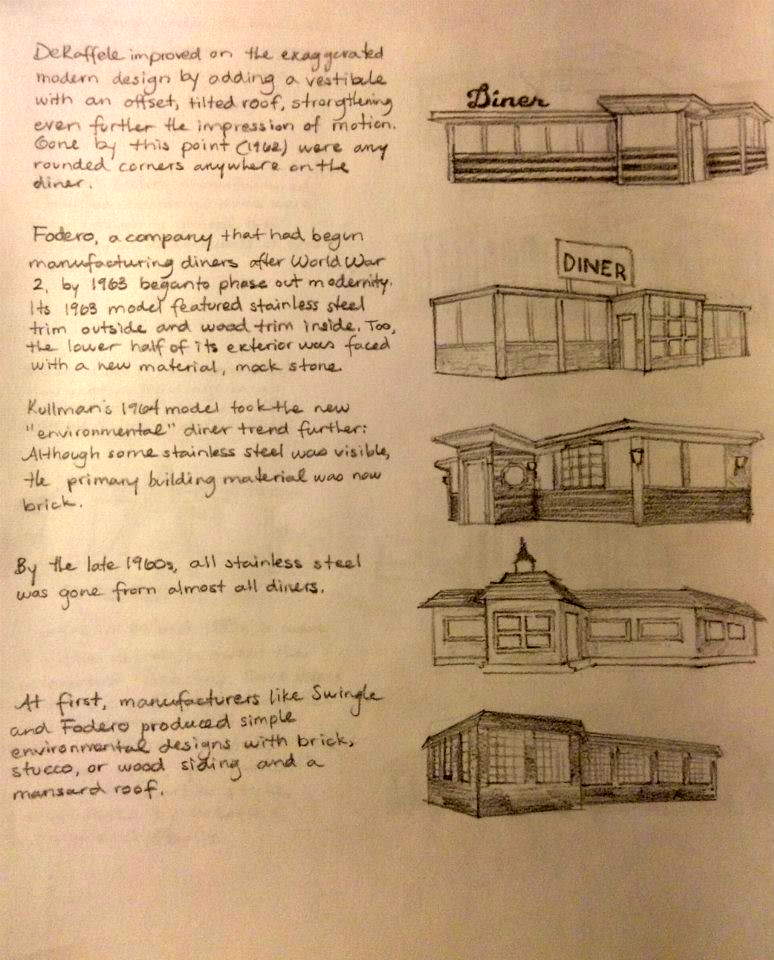 DeRaffele improved on the exaggerated
modern design by adding a vestibule
with an offset, tilted roof, strengthening
even further the impression of motion.
Gone by this point (1962) were any
rounded corners anywhere on the
diner.
Diner
Fodero, a company that had begun
manufacturing diners after World War
2, by 1963 began to phase out modernity.
Its 1963 model featured stainless steel
trim outside and wood trim inside. Too,
the lower half of its exterior was faced
with a new material, mock stone.
DINER
Kullman's 1964 model took the new
"environmental" diner trend further:
Although some stainless steel was visible,
the primary building material was now
brick.
By the late 1960s, all stainless steel
was gone from almost all diners.
At first, manufacturers like Swingle
and Fodero produced simple
environmental designs with brick,
stucco, or wood siding and a
mansard roof.